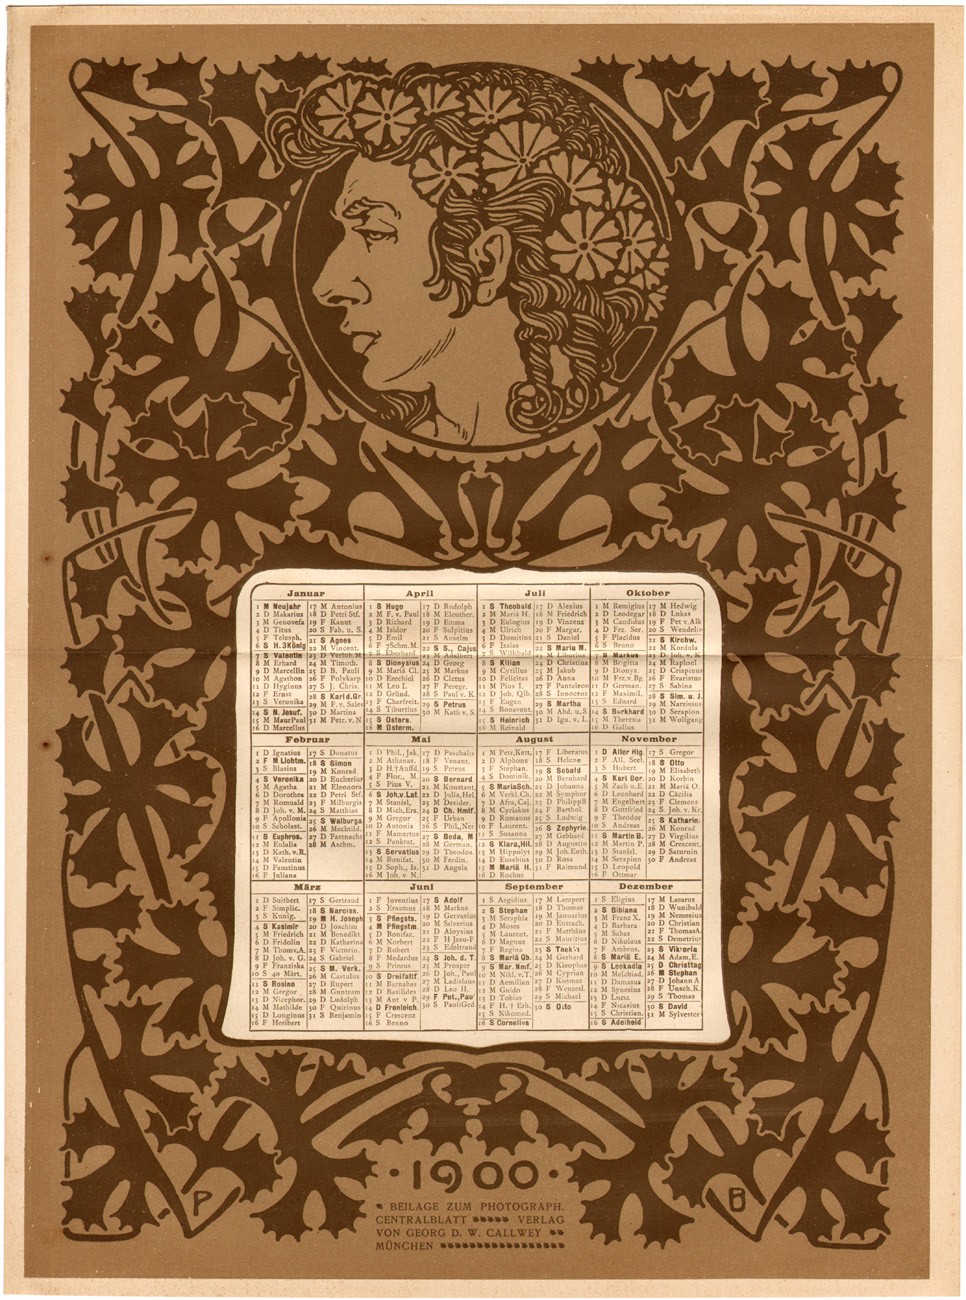 Januar
1 M Neujahr
2 D Makarius
3 M Genovefa
4 D Titus
5 F Telesph.
6 S H. 3König
7 S Valentin
8 M Erhard
9 D Marcellin
10 M Agathon
11 D Hyginus
12 F Ernst
13 S Veronika
14 S N. Jesuf.
15 M MaurPaul
16 D Marcellus
17 M Antonius
18 D Petri Stf.
19 F Kanut
20 S Fab. u. S.
21 S Agnes
22 M Vincent.
23 D Verlob.M.
24 M Timoth.
25 D B. Pauli
26 F Polykarp
27 S J. Chris.
28 S Karl d. Gr.
29 M F. v. Sales
30 D Martina
31 M Petr. v. N.
April
1 S Hugo
2 M F. v. Paul
3 D Richard
4 M Isidor
5 D Emil
6 F 7Schm.M.
7 S Eberhard
8 S Dionysius
9 M Mariä Cl.
10 D Ezechiel
11 M Leo I.
12 D Gründ.
13 F Charfreit.
14 S Tiburtius
15 S Osters.
16 M Osterm.
17 D Rudolph
18 M Eleuther.
19 D Emma
20 F Sulpitius
21 S Anselm
22 S S., Cajus
23 M Adalbert
24 D Georg
25 M Markus
26 D Cletus
27 F Peregr.
28 S Paul v. K.
29 S Petrus
30 M Kath v. S.
Juli
1 S Theobald
2 M Mariä H.
3 D Eulogius
4 M Ulrich
5 D Domitius
6 F Isaias
7 S Willibald
8 S Kilian
9 M Cyrillus
10 D Felicitas
11 M Pius I.
12 D Joh. Qlb.
13 F Eugen
14 S Bonavent.
15 S Heinrich
16 M Reinald
17 D Alexius
18 M Friedrich
19 D Vincenz
20 F Margar.
21 S Daniel
22 S Maria M.
23 M Liborius
24 D Christina
25 M Jakob
26 D Anna
27 F Pantaleon
28 S Innocenz
29 S Martha
30 M Abd. u. S.
31 D Ign. v. L.
Oktober
1 M Remigius
2 D Leodegar
3 M Candidus
4 D Frz. Ser.
5 F Placidus
6 S Bruno
7 S Markus
8 M Brigitta
9 D Dionys.
10 M Frz.v Bg
11 D German.
12 F Maximil.
13 S Eduard
14 S Burkhard
15 M Theresia
16 D Gallus
17 M Hedwig
18 D Lukas
19 F Pet v. Alk
20 S Wendelin
21 S Kirchw.
22 M Kordula
23 D Joh. v. K.
24 M Raphael
25 D Crispinus
26 F Evaristus
27 S Sabina
28 S Sim. u. J.
29 M Narzissus
30 D Serapion.
31 M Wolfgang
Februar
1 D Ignatius
2 F M Lichtm.
3 S Blasius
4 S Veronika
5 M Agatha
6 D Dorothea
7 M Romuald
8 D Joh. v. M.
9 F Apollonia
10 S Scholast.
11 S Euphros.
12 M Eulalia
13 D Kath. v.R.
14 M Valentin
15 D Faustinus
16 F Juliana
17 S Donatus
18 S Simon
19 M Konrad
20 D Eucherius
21 M Eleonora
22 D Petri Stf
23 F Milburgis
24 S Matthias
25 S Walburga
26 M Mechtild.
27 D Fastnacht
28 M Aschm.
Mai
1 D Phil., Jak.
2 M Athanas.
3 D H.†Auffd.
4 F Flor., M.
5 S Pius V.
6 S Joh.v.Lat.
7 M Stanisl.
8 D Mich.Ers.
9 M Gregor
10 D Antonia
11 F Mamertus
12 S Pankrat.
13 S Servatius
14 M Bonifat.
15 D Soph., Is.
16 M Joh. v. N.
17 D Paschalis
18 F Venant.
19 S Petrus
20 S Bernard
21 M Konstant.
22 D Julia, Hel.
23 M Desider.
24 D Ch. Hmlf.
25 F Urban
26 S Phil., Ner
27 S Beda, M
28 M German.
29 D Theodos.
30 M Ferdin.
31 D Angela
August
1 M Petr.Kett.
2 D Alphons
3 F Stephan.
4 S Dominik.
5 S MariaSch.
6 M Verkl.Ch.
7 D Afra, Caj.
8 M Cyriakus
9 D Romanus
10 F Laurent.
11 S Susanna
12 S Klara, Hil.
13 M Hippolyt
14 D Eusebius
15 M Mariä H.
16 D Rochus
17 F Liberatus
18 S Helene
19 S Sebald
20 M Bernhard
21 D Johanna
22 M Symphor
23 D PhilippB
24 F Barthol.
25 S Ludwig
26 S Zephyrin.
27 M Gebhard
28 D Augustin
29 M Joh.Enth.
30 D Rosa
31 F Raimund
November
1 D Aller Hlg.
2 F All. Seel.
3 S Hubert
4 S Karl Bor.
5 M Zach u. E.
6 D Leonhard
7 M Engelbert
8 D Gottfried
9 F Theodor
10 S Andreas
11 S Martin B.
12 M Martin P.
13 D Stanisl.
14 M Serapion
15 D Leopold
16 F Ottmar
17 S Gregor
18 S Otto
19 M Elisabeth
20 D Korbin
21 M Mariä O.
22 D Cäcilia
23 F Clemens
24 S Joh. v. Kr.
25 S Katharin.
26 M Konrad
27 D Virgilius
28 M Crescent.
29 D Saturnin
30 F Andreas
März
1 D Suitbert
2 F Simplic.
3 S Kunig.
4 S Kasimir
5 M Friedrich
6 D Fridolin
7 M Thomv.A.
8 D Joh. v. G.
9 F Franziska
10 S 40 Märt.
11 S Rosine
12 M Gregor
13 D Nicephor.
14 M Mathilde
15 D Longinus
16 F Heribert
17 S Gertraud
18 S Narciss.
19 M H. Joseph
20 D Joachim
21 M Benedikt
22 D Katharina
23 F Victorin.
24 S Gabriel
25 S M. Verk.
26 M Castulus
27 D Rupert
28 M Guntram
29 D Ludolph
30 F Quirinus
31 S Benjamin
Juni
1 F Juventius
2 S Erasmus
3 S Pfingsts.
4 M Pfingstm.
5 D Bonifaz.
6 M Norbert
7 D Robert
8 F Medardus
9 S Primus
10 S Dreifaltf.
11 M Barnabas
12 D Basilides
13 M Ant v P.
14 D Fronleich.
15 F Crescenz
16 S Benno
17 S Adolf
18 M Markus
19 D Gervatius
20 M Silverius
21 D Aloysius
22 F H Jesu-F
23 S Edeltrand
24 S Joh. d. T.
25 M Prosper
26 D Joh., Paul
27 M Ladislaus
28 D Leo II.
29 F Pet., Paul
30 S PauliGed
September
1 S Aegidius
2 S Stephan
3 M Seraphia
4 D Moses
5 M Laurent.
6 D Magnus
7 F Regina
8 S Mariä Gb.
9 S Mar. Nmf.
10 M Nikl.v.T.
11 D Aemilian
12 M Guido
13 D Tobias
14 F H. † Erh.
15 S Nikomed.
16 S Cornelius
17 M Lampert
18 D Thomas
19 M Januarius
20 D Eustach.
21 F Matthäus
22 S Mauritius
23 S Thekla
24 M Gerhard
25 D Kleophas
26 M Cyprian
27 D Kosmas
28 F Wenzel.
29 S Michael
30 S Otto
Dezember
1 S Eligius
2 S Bibiana
3 M Franz X.
4 D Barbara
5 M Sabas
6 D Nikolaus
7 F Ambros.
8 S Mariä E.
9 S Leokadia
10 M Melchiad.
11 D Damasus
12 M Synesius
13 D Lucia
14 F Nicasius
15 S Christian.
16 S Adelheid
17 M Lazarus
18 D Wunibald
19 M Nemesius
20 D Christian
21 F ThomasA.
22 S Demetriu
23 S Viktoria
24 M Adam, E.
25 D Christtag
26 M Stephan
27 D Johann A
28 F Unsch. K.
29 S Thomas
30 S David
31 M Sylvester
· 1900 ·
BEILAGE ZUM PHOTOGRAPH.
CENTRALBLATT VERLAG
VON GEORG D. W. CALLWEY
MÜNCHEN
P B